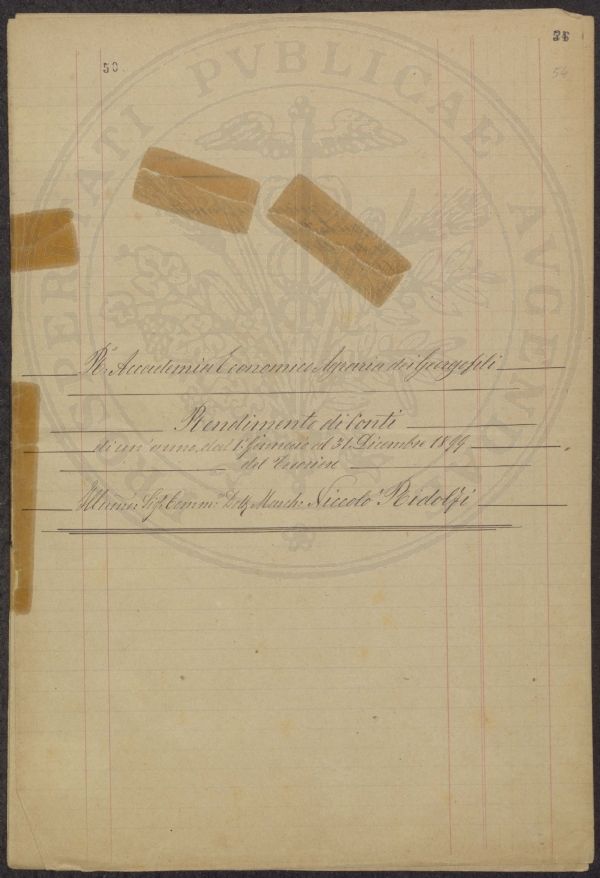 54
50
54
PROSPERITATI PVBLICAE AVGENDAE
R. Accademia Economico Agraria dei Georgofili
Rendimento di Conti
di un'anno, dal 1° Gennaio al 31. Dicembre 1899
del Tesoriere
Illmo: Sigr. Comm: Dott: March: Niccolò Ridolfi